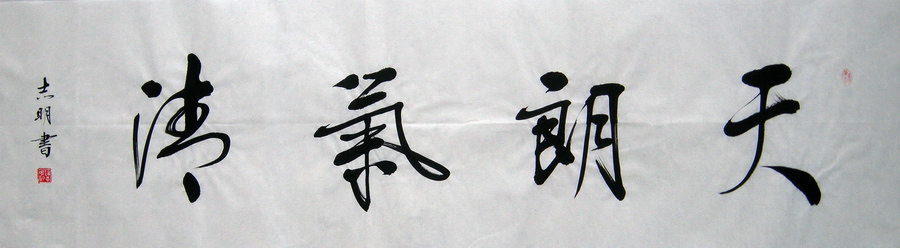 天朗氣清
志明書